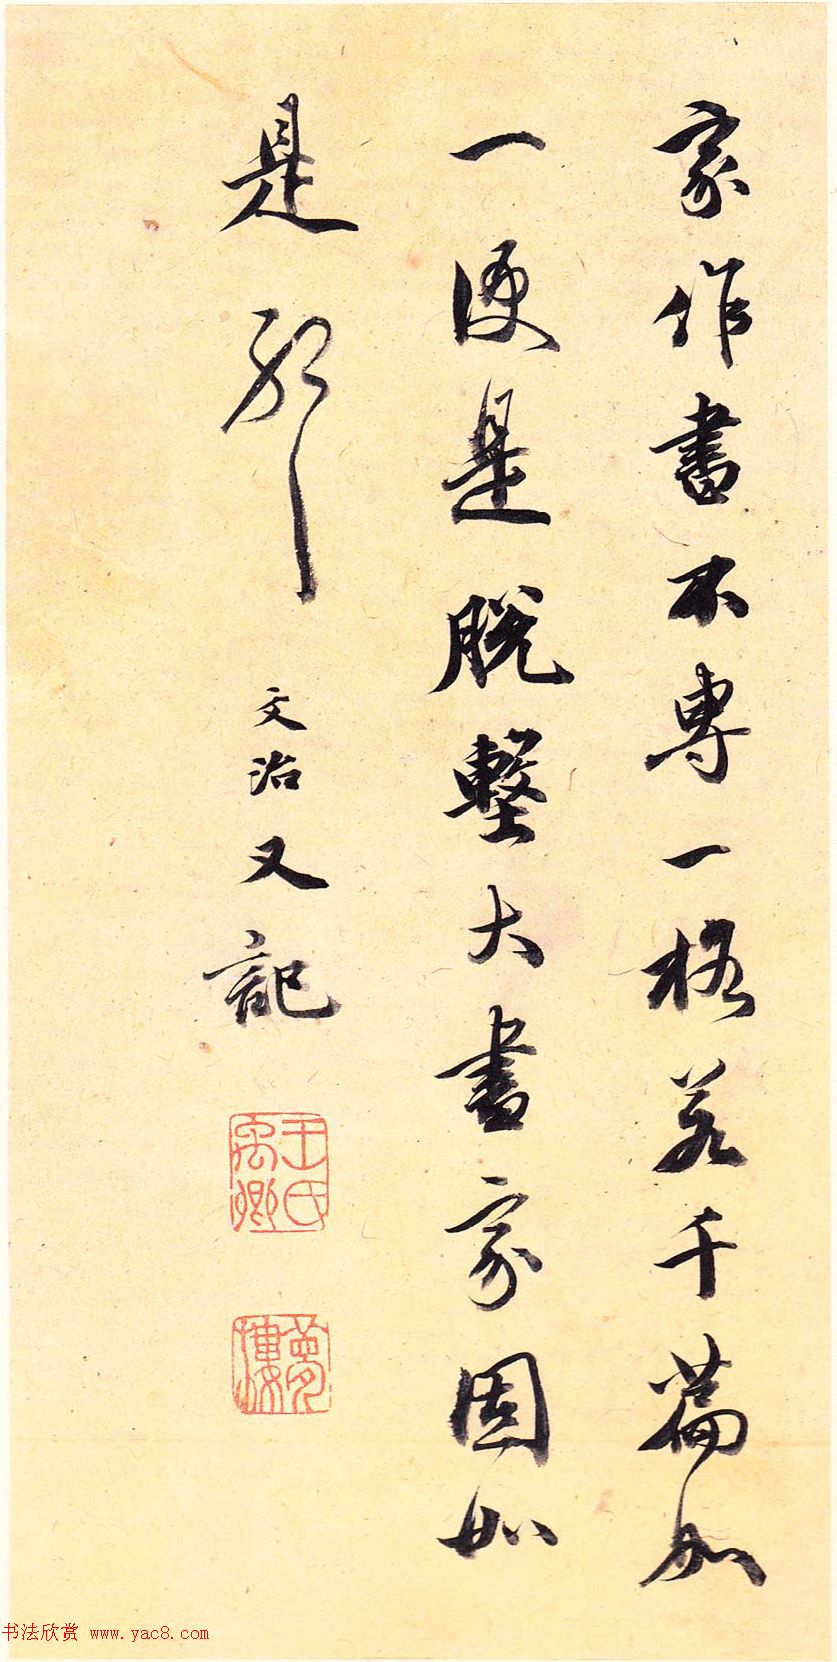 家作書不專一格若千篇如
一便是脫墼大書家固如
是耶
文治又記
王氏禹卿
夢樓
书法欣赏 www.yac8.com